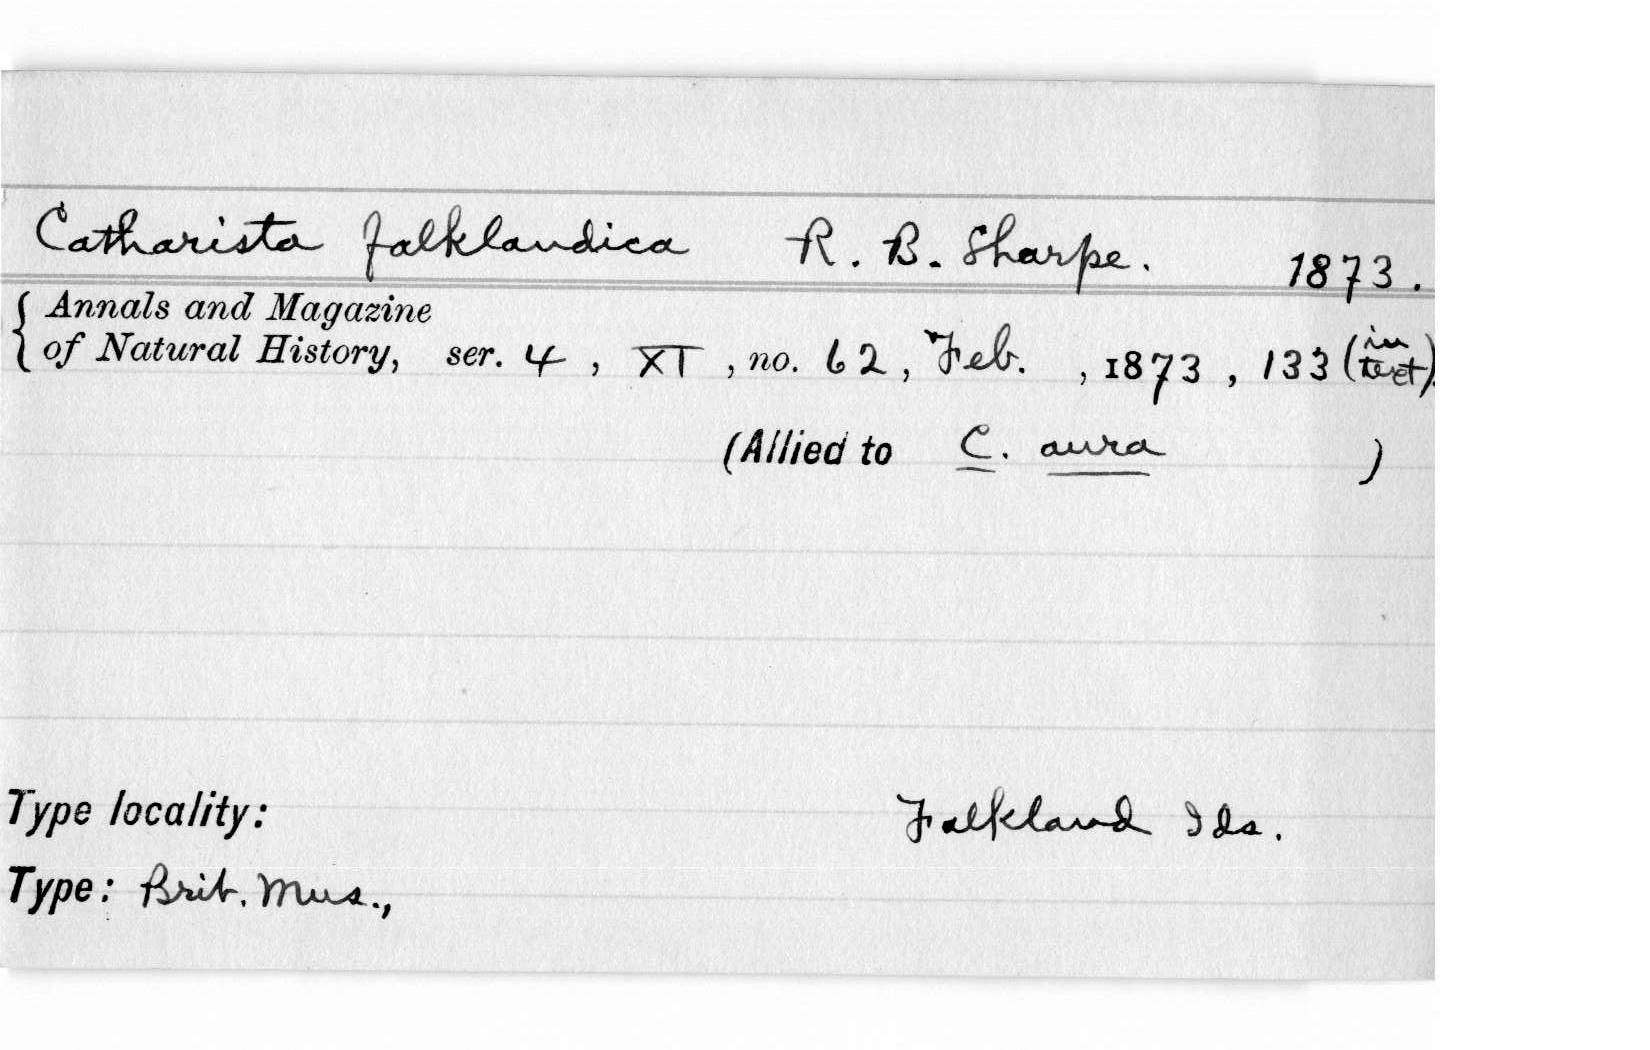 Catharista falklandica R. B. Sharpe. 1873.
{ Annals and Magazine
of Natural History, ser. 4, XI, no. 62, Feb. , 1873, 133 (in text).
(Allied to C. aura )
Type locality: Falkland Ids.
Type: Brit. Mus.,